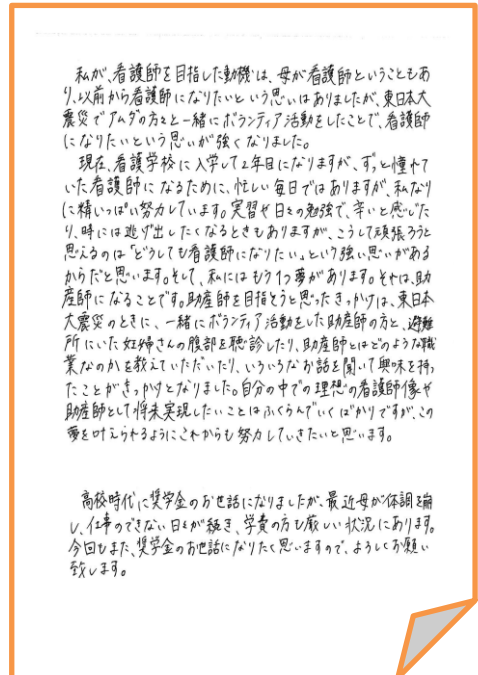 私が、看護師を目指した動機は、母が看護師ということもあ
り、以前から看護師になりたいという思いはありましたが、東日本大
震災でアムダの方々と一緒にボランティア活動をしたことで、看護師
になりたいという思いが強くなりました。
現在、看護学校に入学して2年目になりますが、ずっと憧れて
いた看護師になるために、忙しい毎日ではありますが、私なり
に精いっぱい努力しています。実習や日々の勉強で、辛いと感じた
り、時には逃げ出したくなるときもありますが、こうして頑張ろうと
思えるのは「どうしても看護師になりたい」という強い思いがある
からだと思います。そして、私にはもう1つ夢があります。それは、助
産師になることです。助産師を目指そうと思ったきっかけは、東日本
大震災のときに、一緒にボランティア活動をした助産師の方と、避難
所にいた妊婦さんの腹部を聴診したり、助産師とはどのような職
業なのかを教えていただいたり、いろいろなお話を聞いて興味を持っ
たことがきっかけとなりました。自分の中での理想の看護師像や
助産師として将来実現したいことはふくらんでいくばかりですが、この
夢を叶えられるようにこれからも努力していきたいと思います。
高校時代に奨学金のお世話になりましたが、最近母が体調を崩
し、仕事のできない日々が続き、学費の方も厳しい状況にあります。
今回もまた、奨学金のお世話になりたく思いますので、よろしくお願い
致します。